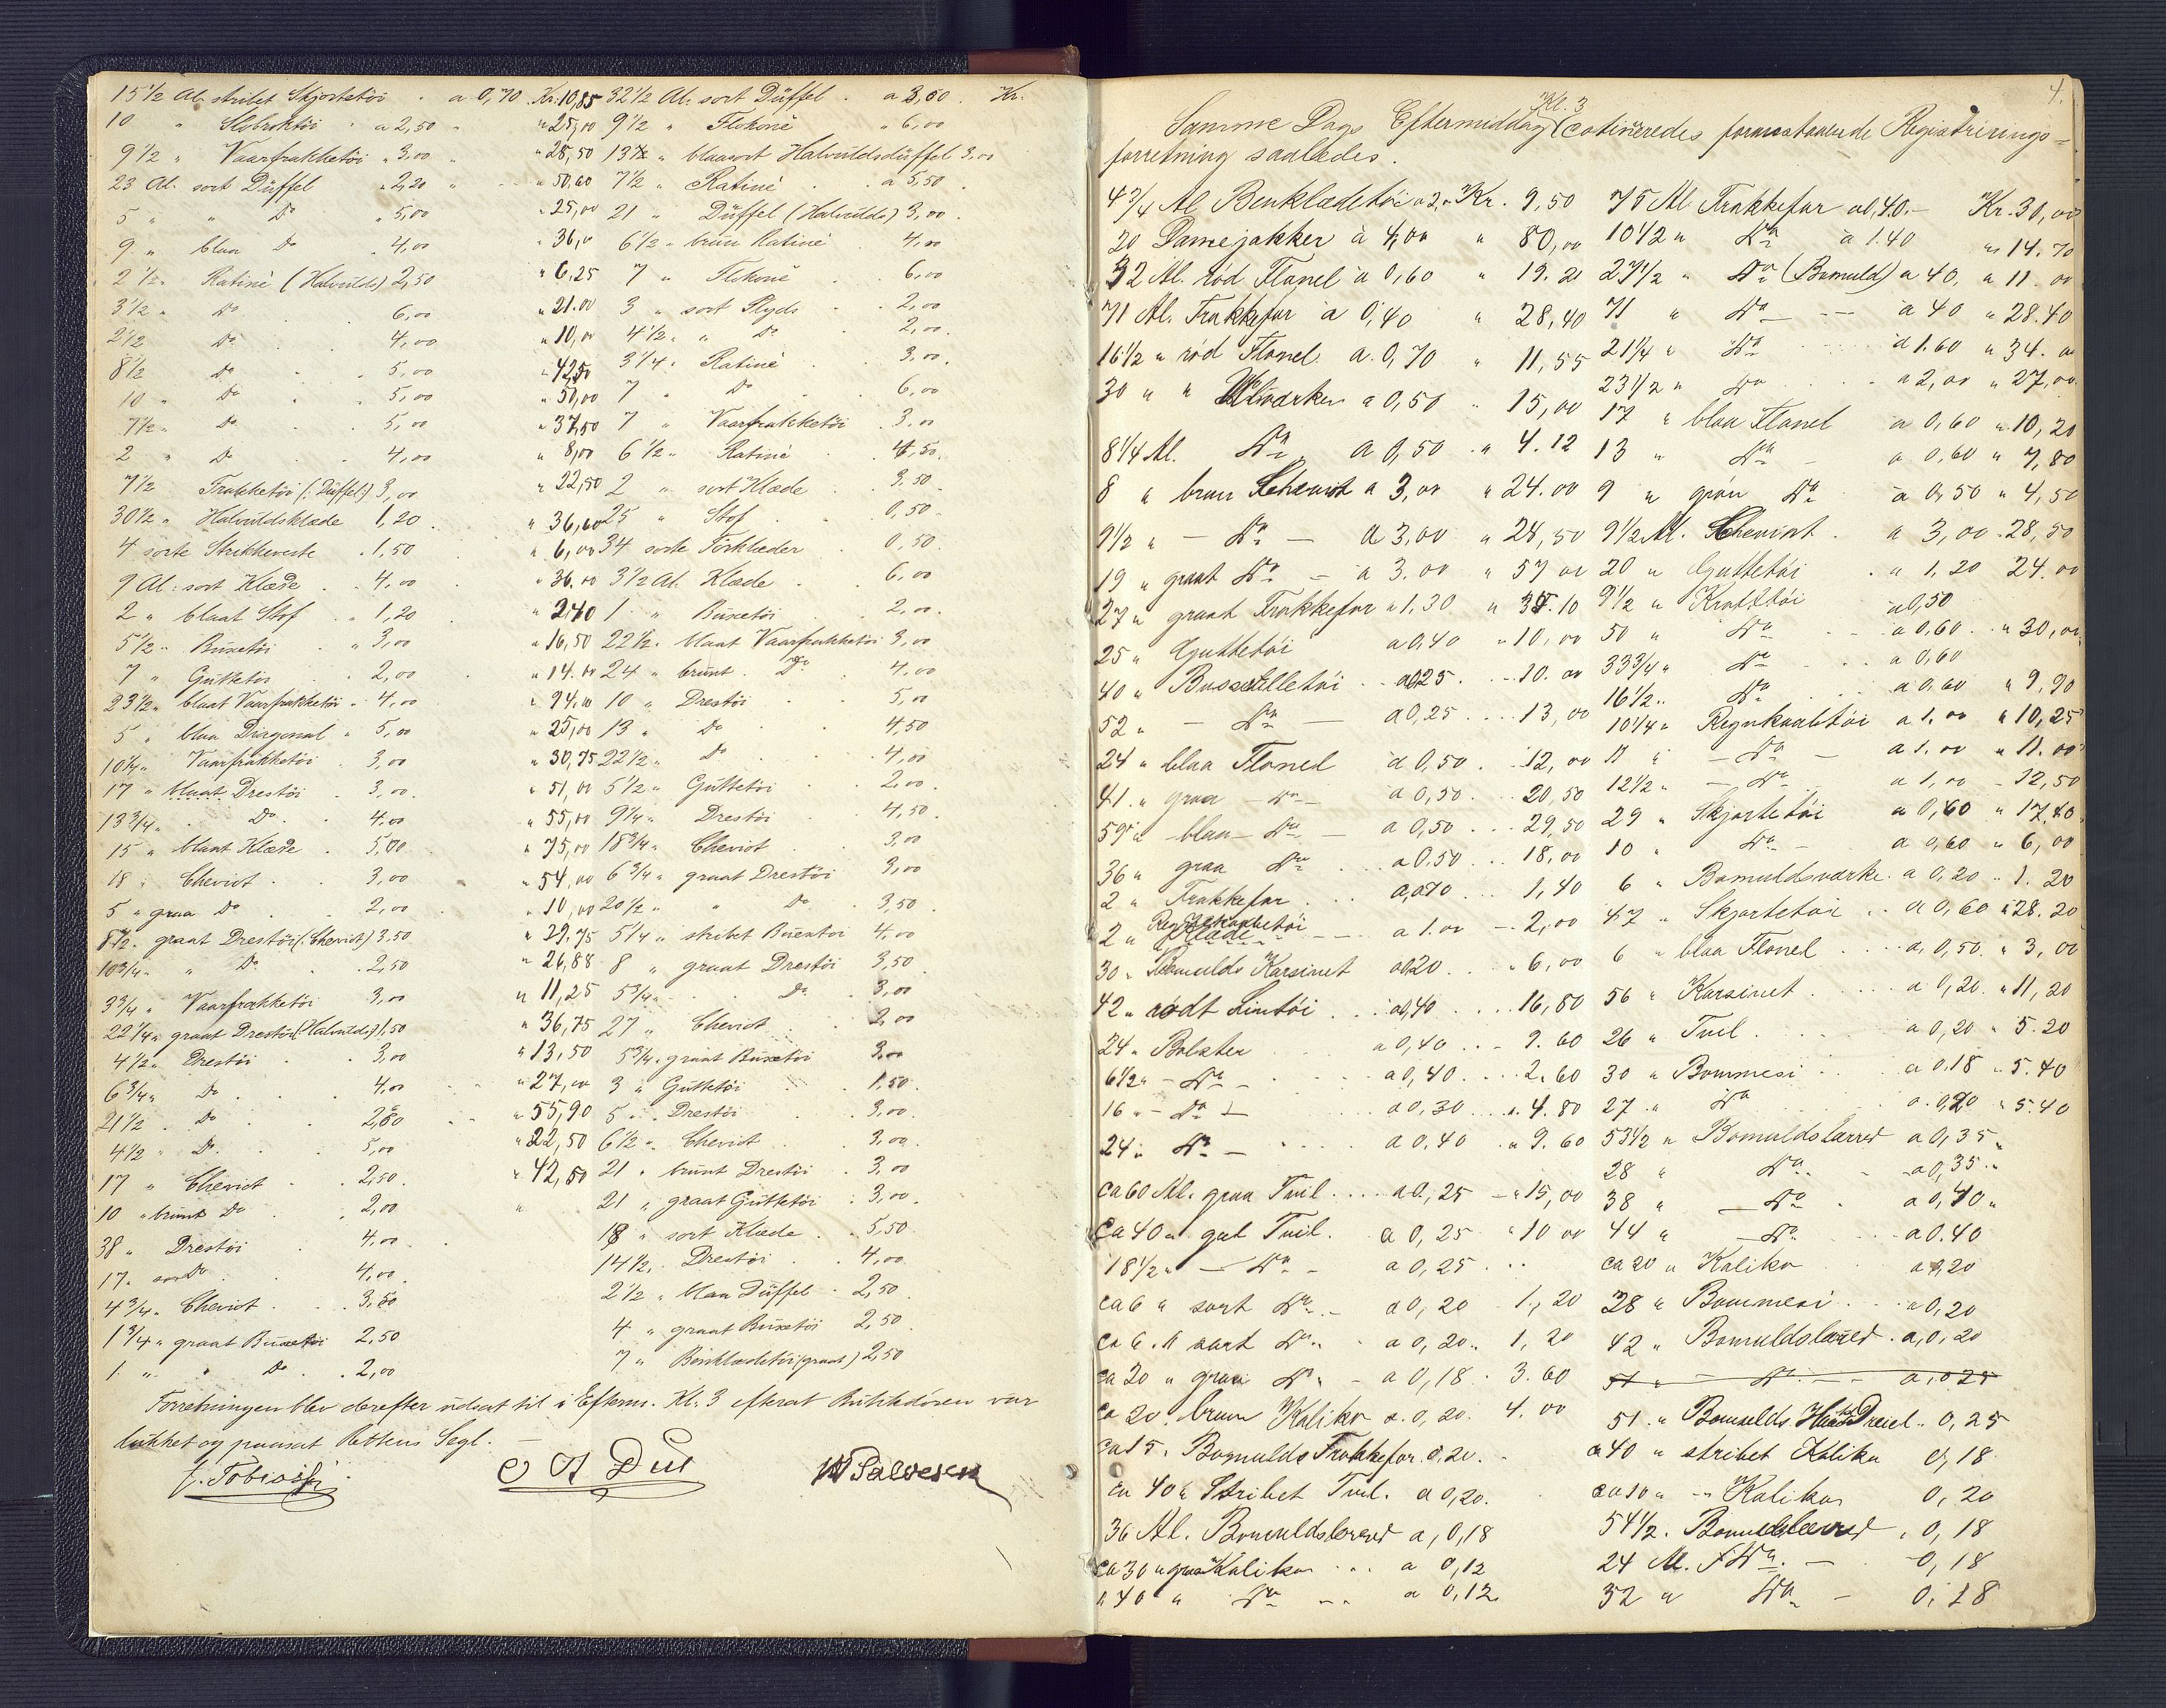 15 1/2 Al. stribet Skjortetöi . a 0,70 . Kr. 10,85
10 " Slobroktöi " a 2,50 " " 25,00
9 1/2 " Vaarfrakketöi " 3,00 " " 28,50
23 Al. sort Düffel " 2,20 " " 50,60
5 " " Do " 5,00 " 25,00
9 " blaa Do " 4,00 " 36,00
2 1/2 " Ratiné (Halvulds) 2,50 " 6,25
3 1/2 " Do . 6,00 " 21.00
2 1/2 Do . 4,00 " 10,00
8 1/2 Do . 5,00 " 42,50
10 " Do . 5,00 " 50,00
7 1/2 " Do . 5,00 " 37,50
2 " Do . 4,00 " 8,00
7 1/2 Frakketöi (: Düffel:) 3,00 " 22,50
30 1/2 " Halvuldsklæde 1,20 . " 36,60
4 sorte Strikkeveste . 1,50 " 6,00
9 Al: sort Klæde . 4,00 " 36.00
2 " blaat Stof . 1,20 " 2,40
5 1/2 " Buxetöi . " 3,00 " 16,50
7 " Guttetöi . 2,00 " 14.00
23 1/2 " blaat Vaarfrakketöi . 4,00 " 94,00
5 " blaa Dragonal " 5,00 " 25,00
10 1/4 " Vaarfrakketöi . 3,00 " 30,75
17 " blaat Drestöi . 3,00 . " 51,00
13 3/4 " . Do . 4,00 " 55,00
15 " blaat Klæde . 5,00 " 75,00
18 " Cheviot . . 3,00 " 54,00
5 " graa Do . . 2,00 . " 10,00
8 1/2 . graat Drestöi (: Cheviot) 3,50 " 29.75
10 3/4 " " Do . . 2,50 " 26,88
3 3/4 " Vaarfrakketöi 3,00 " 11,25
22 1/4 " graat Drestöi (Halvulds) 1,50 " 36,75
4 1/2 " Drestöi . . 3,00 " 13,50
6 3/4 " Do . . 4,00 " 27,00
21 1/2 . Do . . 2,60 " 55,90
4 1/2 " Do . . 5,00 " 22,50
17 " Cheviot . . 2,50 . " 42,50
10 " brunt Do . 2,00 "
38 " Drestöi . 4,00
17 . Do . 4,00 .
4 3/4 " Cheviot . . 3,50
1 3/4 " graat Buxetöi 2,50
1 " " Do . . 2,00
32 1/2 Al. sort Düffel . a 3,60 . Kr.
9 1/2 " Flokoné " 6,00
13 1/2 " blaasort Halvuldsdüffel 3,00
7 1/2 " Ratiné . a 5,50 .
21 " Düffel (Halvulds) 3,00 .
6 1/2 " brun Ratiné . 4,00
7 " Flokoné . . 6,00
3 " sort Plyds . . 2,00
4 1/2 " " Do . 2,00 .
3 1/4 " Ratiné . 3,00 .
7 " Do . . 6,00
7 " Vaarfrakketöi . 3,00
6 1/2 " Ratiné . 4,50 .
2 " sort Klæde . 3,50
25 " Stof . . 0,50 .
34 sorte Törklæder . 0,50 .
3 1/2 Al. Klæde . . 6,00
1 " Buxetöi . 2,00 .
22 1/2 . blaat Vaarfrakketöi 3,00
24 " brunt . Do . 4,00
10 " Drestöi . . 5,00
13 " Do . . 4,50
22 1/2 " Do . . 4,00
5 1/2 " Guttetöi . 2,00 .
9 1/4 " Drestöi . 4,50 .
18 3/4 " Cheviot . 3,00
6 3/4 " graat Drestöi 3,00
20 1/2 " " Do . 3,50 .
5 1/4 " stribet Buxetöi 4,00
8 " graat Drestöi 3,50 .
5 3/4 " . Do . 3,00
27 " Cheviot . 2,00
5 3/4 " graat Buxetöi 3,00
3 " Guttetöi . 1,50 .
5 " Drestöi . 3,00 .
6 1/2 " Cheviot . 3,00 .
21 " brunt Drestöi . 3,00
21 " graat Guttetöi . 3,00 .
18 " sort Klæde . 5,50 .
14 1/2 . Drestöi . 4,00
2 1/2 " blaa Düffel . 2,50
4 " graat Buxetöi 2,50
7 " Benklædetöi (graat) 2,50
Forretningen blev derefter udsat til i Efterm. Kl. 3 efterat Butikdören var
lukket og paasat Rettens Segl. -
W Salvesen
4.
Samme Dags Eftermiddag Kl. 3 cotineredes foranstaaende Registrerings-
forretning saaledes.
4 3/4 Al Benklædetöi a 2,00 Kr. 9,50
20 Damejakker à 4,00 " 80,00
32 Al. rød Flanel a 0,60 " 19.20
71 Al. Frakkefor a 0,40 " 28,40
16 1/2 " rød Flanel a. 0,70 " 11,55
30 " " Ulværken a 0,50 " 15,00
8 1/4 Al. Do " a 0,50 " 4.12
8 " brun Scheviot a 3,00 " 24.00
9 1/2 " - Do - a 3,00 " 28,50
19 " graat Do - a 3.00 " 57 00
27 " graat Frakkefor a 1,30 " 35.10
25 " Guttetöi a 0,40 " 10,00
40 " Busserilletöi . a 0,25 . . 10.00
52 " - Do - a 0,25 . . . 13,00
24 " blaa Flanel a 0,50 . . 12,00
41 " graa - Do - a 0,50 . . 20,50
59 " blaa - Do - a 0,50 . . . 29,50
36 " graa Do . . a 0,50 . . . 18,00
2 " Frakkefor . . . a 0,70 . . . 1,40
2 " Regnkaabetöi - - a 1.00 - 2,00
30 " Bomulds Karsinet a 0,20 . . " 6,00
42 " rødt Lintöi . . . a 0,40 . . . . 16,80
24 " Bolster . . a 0,40 . . . 9.60
6 1/2 " - Do - . . a 0,40 . . . . 2.60
16 " - Do - . . a 0,30 . . . 4.80
24 " Do - . . . a 0.40 . " 9.60
ca 60 Al. graa Tvil . . . . a 0,25 - " 15,00
ca 40 " gul Tvil . . a 0,25 " 10 00
18 1/2 " - Do - a 0,25 . . .
ca 6 " sort Do - a 0,20 1,20
ca 6 . " sort Do . a 0,20 . 1,20
ca 20 " graa Do " - a 0,18 . 3.60
ca 20 . brun Kaliko a. 0,20 . 4.00
ca 15 . Bomulds Frakkefor 0,20 . .
ca 40 " Stribet Tvil . a 0,20 .
36 Al. Bomuldslærred a, 0,18
ca 30 " graa Kaliko . . . a 0,12
" 40 " Do . . a 0,12
75 Al. Frakkefor a 0,40 . - Kr. 30,00
10 1/2 " Do a 1.40 " 14.70
27 1/2 " Do (Bomuld) a 40, " 11.00
71 " Do - - a 40 " 28.40
21 1/4 " Do . . . a 1.60 " 34.00
23 1/2 " Do . . . a 2,00 " 27,00
17 " blaa Flanel a 0,60 " 10,20
13 " Do - a 0,60 " 7,80
9 " grön Do a 0,50 " 4,50
9 1/2 Al. Scheviot . a 3,00 . 28,50
20 " Guttetöi . a 1,20 24.00
9 1/2 " Kratttöi a 0,50
50 " Do . - a 0,60 . " 30,00
33 3/4 " Do - . . a 0,60
16 1/2 " Do . . . a 0,60 " 9,90
10 1/4 " Regnkaabtöi a 1.00 " 10,25
11 " - Do - a 1.00 " 11.00
12 1/2 " - Do - a 1,00 - 12,50
29 " Skjortetöi a 0,60 " 17,40
10 " Do - a 0,60 " 6,00
6 " Bomuldsværke . a 0,20 . 1.20
47 " Skjortetöi . . a 0,60 " 28.20
6 " blaa Flanel . . . a, 0,50 . " 3,00
56 " Karsinet . . . . a 0,20 . " 11,20
26 " Tvil . . . a 0,20 " 5.20
30 " Bommesi . . . a 0,18 " 5.40
27 " Do . . a. 0,20 " 5.40
53 1/2 " Bomuldslærred a 0,35 "
28 " Do . . a 0,35 "
38 " - Do . a 0,40 "
44 " - Do . . a 0.40
ca 20 " Kaliko . . a 0,20
28 " Bommesi . . a 0,20
42 " Bomuldslærred . a, 0,20
51 " - Do . - - a, 0 25
51 " Bomulds Dreiel . 0,25
a 40 " stribet Kaliko 0,18
ca 10 " - Kaliko 0,20
54 1/2 . Bomuldslærred . 0,18
24 Al. Do . - 0,18
32 " Do - 0,18